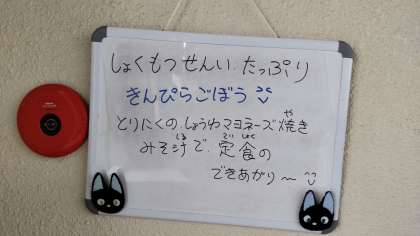 しょくもつせんい、たっぷり
きんぴらごぼう
とりにくの、しょうゆマヨネーズ焼き
や
みそ汁で、定食の
しる てい しょく
できあがり～